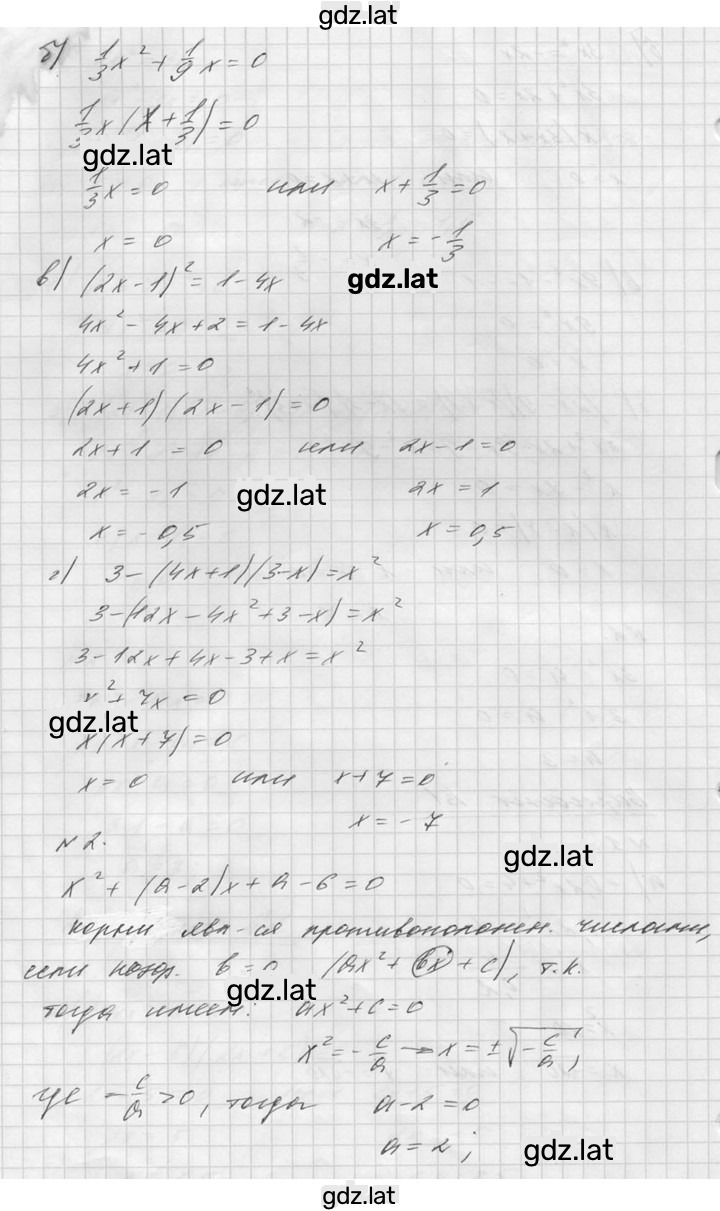 gdz.lat
б) 1/3 x² + 1/9 x = 0
1/3 x (x + 1/3) = 0
gdz.lat
1/3 x = 0 или x + 1/3 = 0
x = 0 x = - 1/3
в) (2x - 1)² = 1 - 4x
gdz.lat
4x² - 4x + 2 = 1 - 4x
4x² + 1 = 0
(2x + 1)(2x - 1) = 0
2x + 1 = 0 или 2x - 1 = 0
2x = - 1 2x = 1
gdz.lat
x = - 0,5 x = 0,5
г) 3 - (4x + 1)(3 - x) = x²
3 - (12x - 4x² + 3 - x) = x²
3 - 12x + 4x - 3 + x = x²
x² + 7x = 0
gdz.lat
x(x + 7) = 0
x = 0 или x + 7 = 0
x = - 7
№ 2.
gdz.lat
x² + (a - 2)x + a - 6 = 0
корни явл-ся противоположн. числами,
если коэф. b = 0 (ax² + bx + c), т.к.
gdz.lat
тогда имеем: ax² + c = 0
x² = - c/a → x = ± √(- c/a),
где - c/a > 0, тогда a - 2 = 0
a = 2;
gdz.lat
gdz.lat